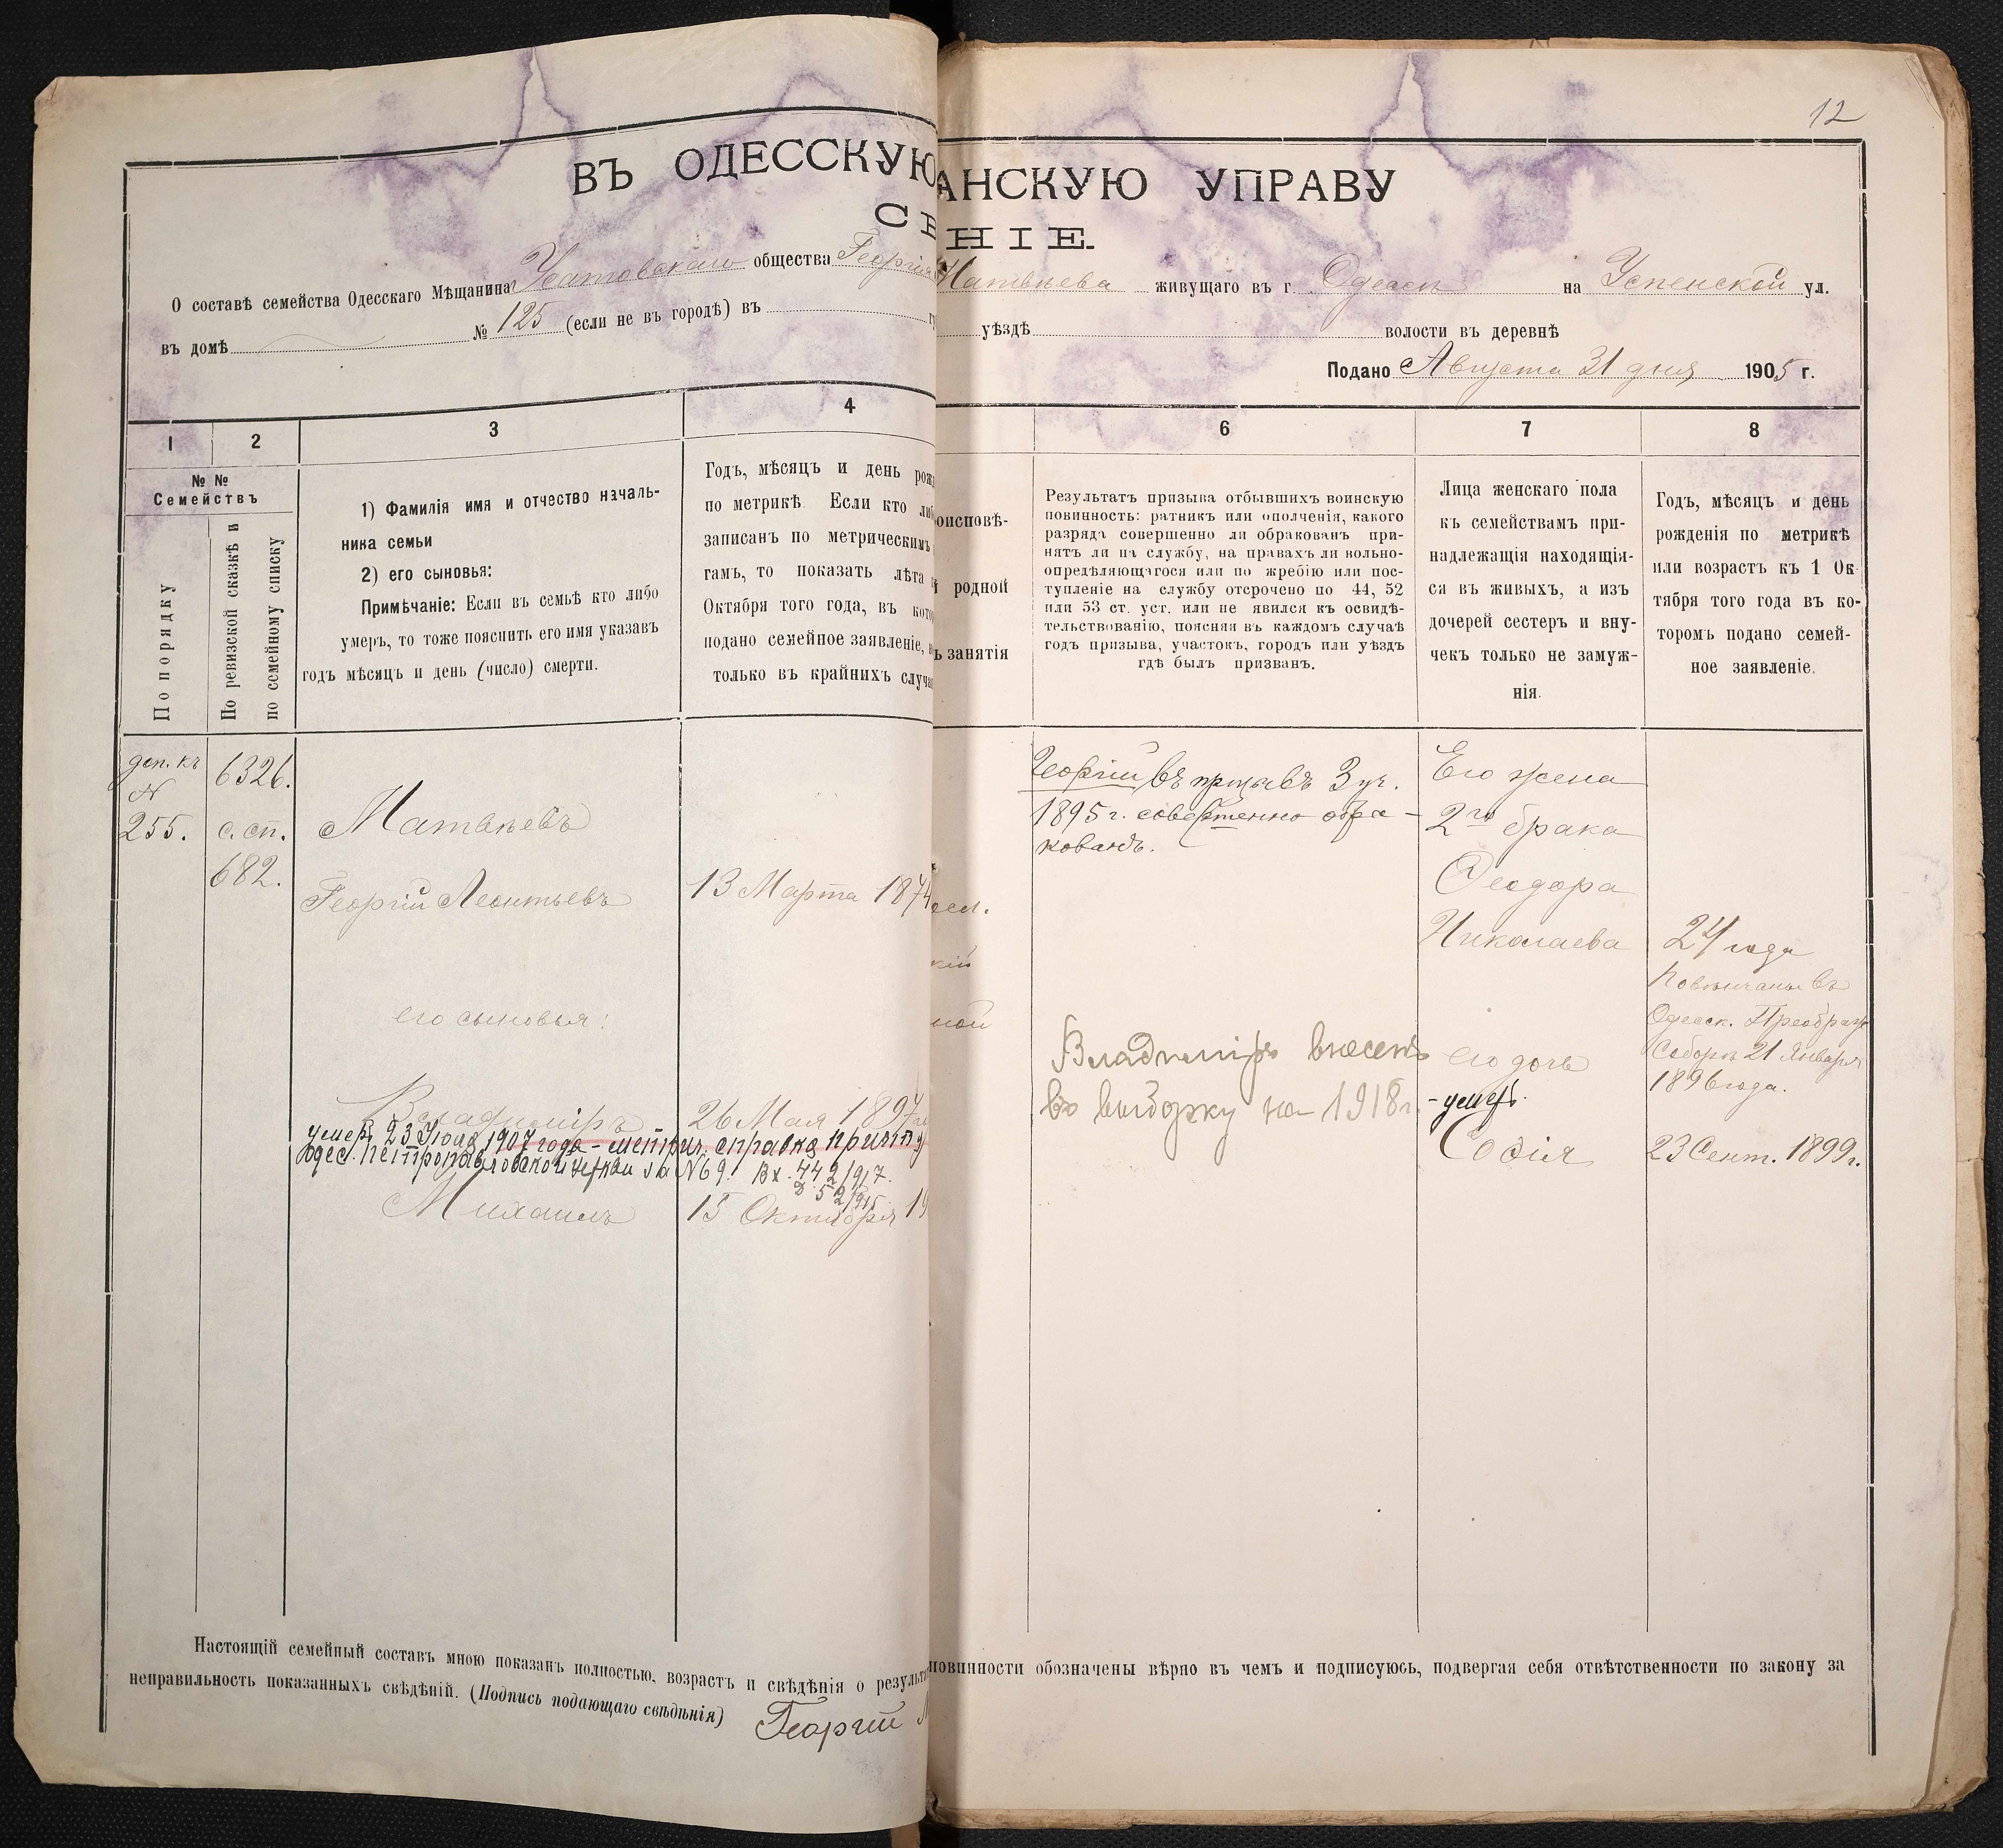 12
ВЪ ОДЕССКУЮ
АНСКУЮ УПРАВУ
СВ
НІЕ.
О составѣ семейства Одесскаго Мѣщанина Усатовскаго общества Георгія
Матвѣева живущаго въ г. Одессѣ на Успенской ул.
въ домѣ № 125 (если не въ городѣ) въ
уѣздѣ волости въ деревнѣ
Подано Августа 31 дня 1905 г.
1
2
3
4
6
7
8
№ №
Семействъ
По порядку
По ревизской сказкѣ и
по семейному списку
1) Фамилія имя и отчество началь-
ника семьи
2) его сыновья:
Примѣчаніе: Если въ семьѣ кто либо
умеръ, то тоже пояснить его имя указавъ
годъ мѣсяцъ и день (число) смерти.
Годъ, мѣсяцъ и день рож
по метрикѣ Если кто ли
записанъ по метрическимъ
гамъ, то показать лѣта
Октября того года, въ кото
подано семейное заявленіе,
только въ крайнихъ случа
оисповѣ-
родной
ъ занятія
Результатъ призыва отбывшихъ воинскую
повинность: ратникъ или ополченія, какого
разряда совершенно ли обракованъ при-
нятъ ли на службу, на правахъ ли вольно-
опредѣляющагося или по жребію или пос-
тупленіе на службу отсрочено по 44, 52
или 53 ст. уст. или не явился къ освидѣ-
тельствованію, поясняя въ каждомъ случаѣ
годъ призыва, участокъ, городъ или уѣздъ
гдѣ былъ призванъ.
Лица женскаго пола
къ семействамъ при-
надлежащія находящія-
ся въ живыхъ, а изъ
дочерей сестеръ и вну-
чекъ только не замуж-
нія.
Годъ, мѣсяцъ и день
рожденія по метрикѣ
или возрастъ къ 1 Ок
тября того года въ ко-
торомъ подано семей-
ное заявленіе.
доп. къ
№
255.
6326.
с. сп.
682.
Матвѣевъ
Георгій Леонтьевъ
13 Марта 1874
его сыновья:
Владиміръ
26 Мая 1897
умеръ 23 Іюля 1907 года - метрич. справка причта
Одес. Петропавловской церкви за № 69. Вх. 442/1917.
Д. 52/915
Михаилъ
15 Октября 19
осл.
кій
ной
Георгій въ призывъ 3 уч.
1895 г. совершенно обра-
кованъ.
Владиміръ внесенъ
въ выборку на 1918 г.
Его жена
2го брака
Ѳеодора
Николаева
24 года
Повѣнчаны въ
Одесск. Преображ
Соборѣ 21 Января
1896 года.
его дочь
- умеръ.
Софія
23 Сент. 1899 г.
Настоящій семейный составъ мною показанъ полностью, возрастъ и свѣдѣнія о результа
повинности обозначены вѣрно въ чемъ и подписуюсь, подвергая себя отвѣтственности по закону за
неправильность показанныхъ свѣдѣній. (Подпись подающаго свѣдѣнія)
Георгій М